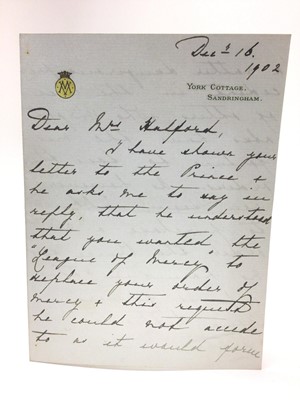 Decr 16.
1902
YORK COTTAGE.
SANDRINGHAM.
Dear Mrs Halford,
I have shown your
letter to the Prince &
he asks me to say in
reply, that he understood
that you wanted the
"League of Mercy" to
replace your order of
Mercy & this request
he could not accede
to as it would form